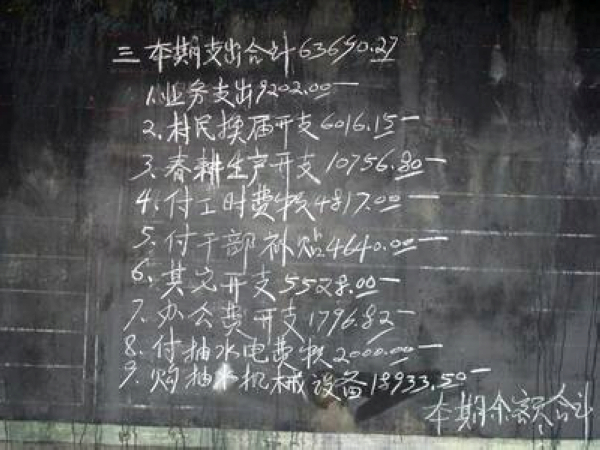 三 本期支出合计63690.27
1.业务支出9202.00一
2.村民换届开支6016.15一
3.春耕生产开支10756.80一
4.付工时费4817.00一
5.付干部补贴4640.00一
6.其它开支5528.00一
7.办公费开支1796.82一
8.付抽水电费2000.00一
9.购抽水机械设备18933.50一
本期余额合计